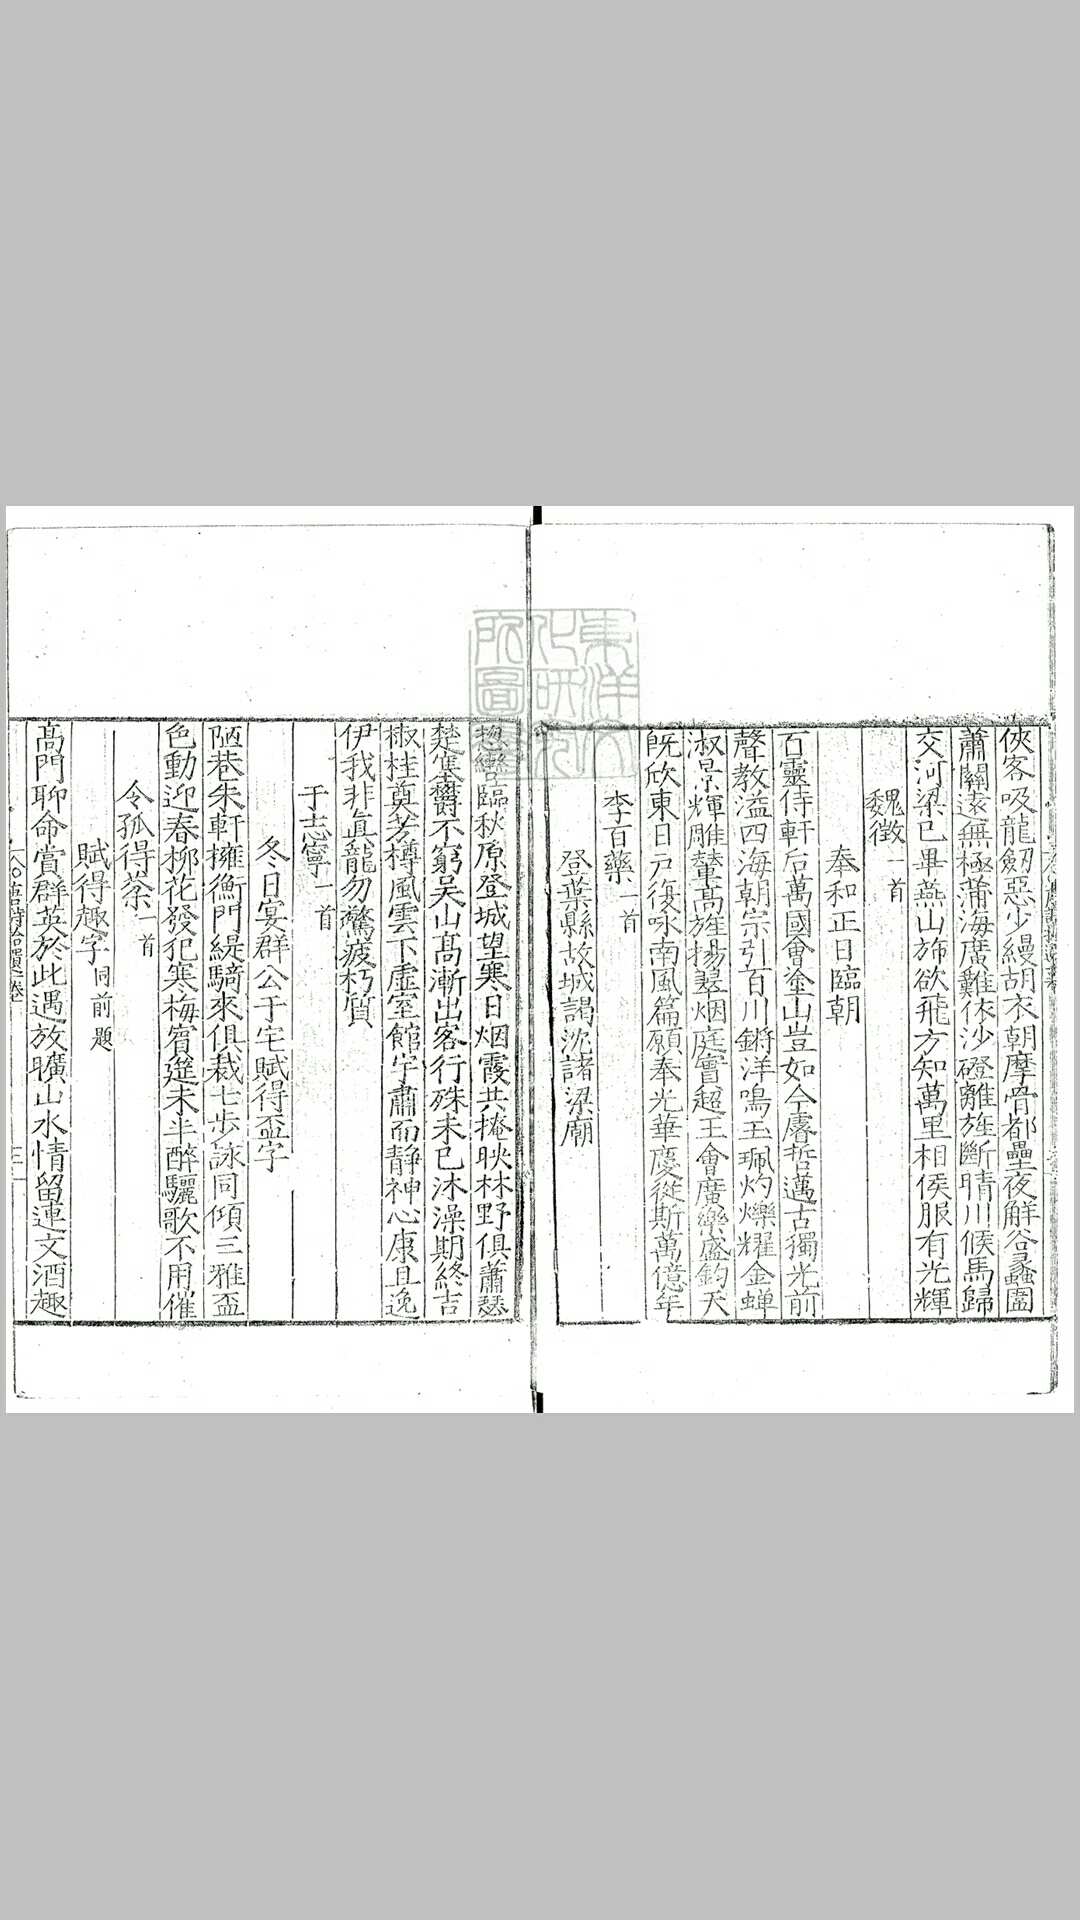 俠客吸龍劒惡少縵胡衣朝摩骨都壘夜解谷蠡圍
蕭關遠無極蒲海廣難依沙磴離旌斷晴川候馬歸
交河梁已畢燕山斾欲飛方知萬里相侯服有光輝
魏徵一首
奉和正日臨朝
百靈侍軒后萬國會塗山豈如今睿哲邁古獨光前
聲教溢四海朝宗引百川鏘洋鳴玉珮灼爍耀金蟬
淑景輝雕輦高旌揚翠烟庭實超王會廣樂盛鈞天
既欣東日戸復咏南風篇願奉光華慶從斯萬億年
李百藥一首
登葉縣故城謁沈諸梁廟
緫轡臨秋原登城望寒日烟霞共掩映林野俱蕭瑟
楚塞鬱不窮吳山高漸出客行殊未已沐澡期終吉
椒桂奠芳樽風雲下虛室館宇肅而静神心康且逸
伊我非真龍勿驚疲朽質
于志寧一首
冬日宴群公于宅賦得盃字
陋巷朱軒擁衡門緹騎來俱裁七歩詠同傾三雅盃
色動迎春柳花發犯寒梅賓筵未半醉驪歌不用催
令孤得棻一首
賦得趣字同前題
高門聊命賞群英於此遇放曠山水情留連文酒趣
東洋文化研究所圖